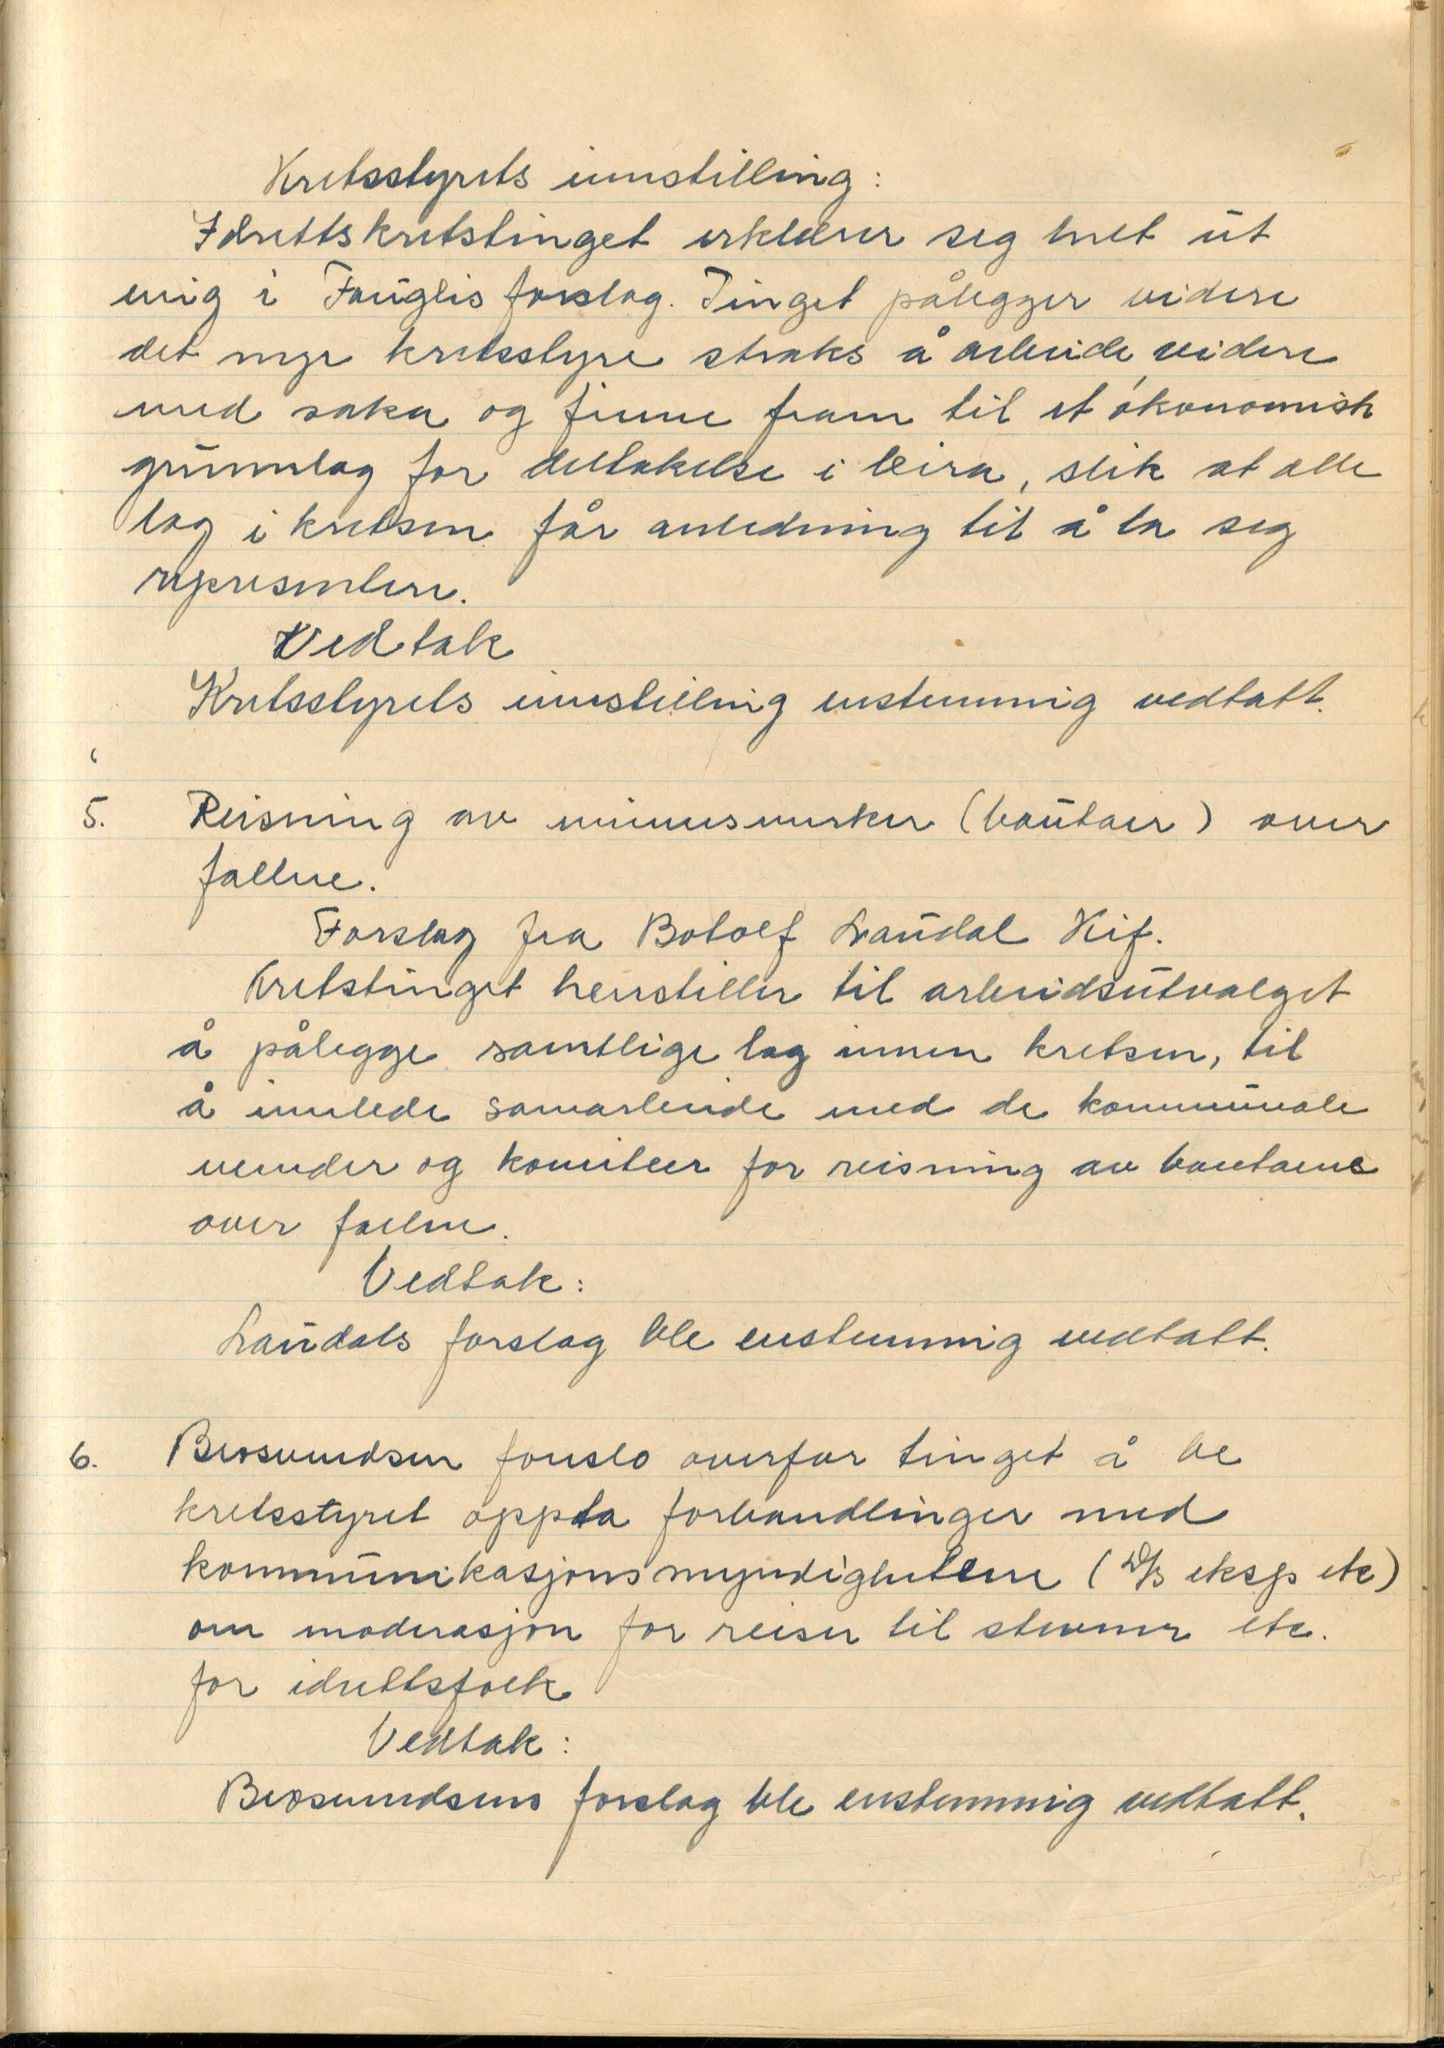 Kretsstyrets innstilling:
Idrettskretstinget erklærer seg helt ut
enig i Fauglis forslag. Tinget pålegger videre
det nye kretsstyre straks å arbeide videre
med saka og finne fram til et økonomisk
grunnlag for deltakelse i leira, slik at alle
lag i kretsen får anledning til å la seg
representere.
Vedtak
Kretsstyrets innstilling enstemmig vedtatt.
5. Reisning av minnesmerker (bautaer) over
falne.
Forslag fra Botolf Laudal Kif.
Kretstinget henstiller til arbeidsutvalget
å pålegge samtlige lag innen kretsen, til
å innlede samarbeide med de kommunale
nemder og komiteer for reisning av bautaene
over falne.
Vedtak:
Laudals forslag ble enstemmig vedtatt.
6. foreslo overfor tinget å be
kretsstyret oppta forhandlinger med
kommunikasjonsmyndighetene (D/S eksp etc)
om moderasjon for reiser til stevner etc.
for idrettsfolk
Vedtak:
forslag ble enstemmig vedtatt.